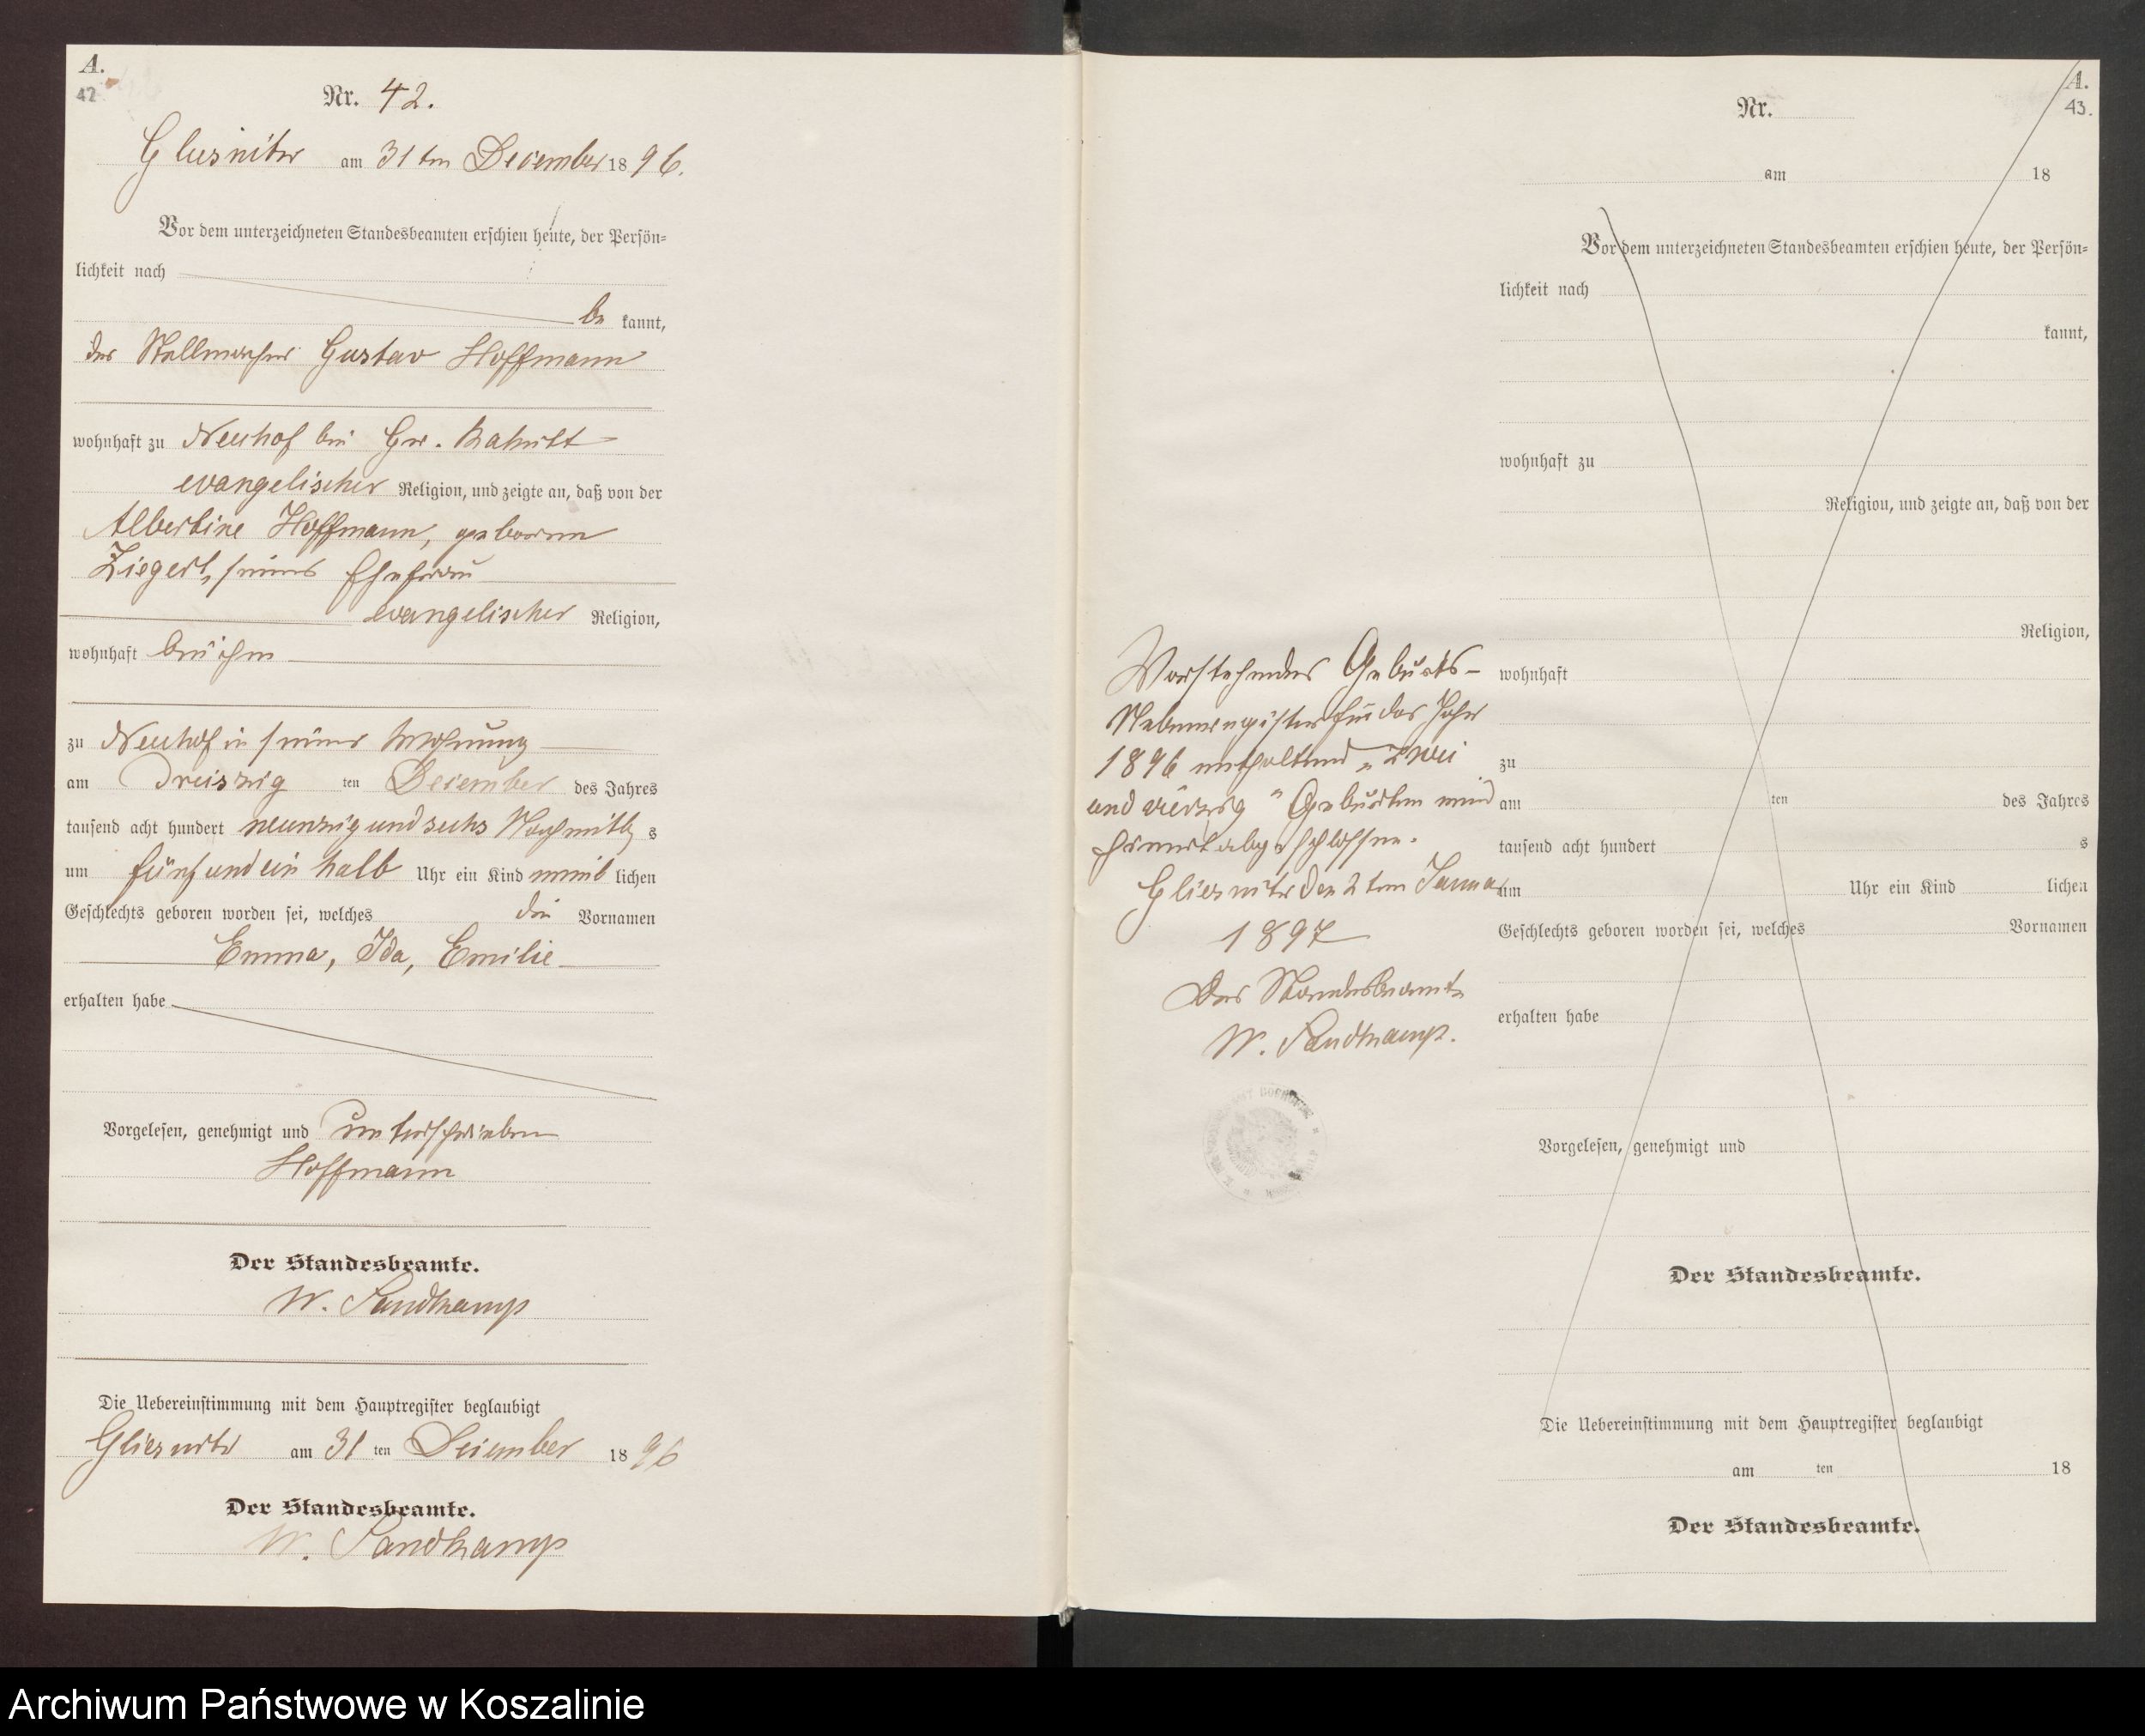 A.
42
Nr. 42.
Gliesnitz am 31ten December 1896.
Vor dem unterzeichneten Standesbeamten erschien heute, der Persön-
lichkeit nach
be kannt,
der Stellmacher Gustav Hoffmann
wohnhaft zu Neuhof bei Gr.
evangelischer Religion, und zeigte an, daß von der
Albertine Hoffmann, geborene
Ziegert, seiner Ehefrau
evangelischer Religion,
wohnhaft bei ihm
zu Neuhof in seiner Wohnung
am Dreiszig ten December des Jahres
tausend acht hundert neunzig und sechs Nachmittg s
um fünf und ein halb Uhr ein Kind weib lichen
Geschlechts geboren worden sei, welches die Vornamen
Emma, Ida, Emilie
erhalten habe
Vorgelesen, genehmigt und unterschrieben
Hoffmann
Der Standesbeamte.
W. Sandkamp
Die Uebereinstimmung mit dem Hauptregister beglaubigt
Gliesnitz am 31 ten December 1896
Der Standesbeamte.
W. Sandkamp
Vorstehendes Geburts-
Nebenregister für das Jahr
1896 enthaltend „zwei
und vierzig" Geburten wird
hiermit abgeschlossen.
Gliesnitz den 2ten Januar
1897
Der Standesbeamte
W. Sandkamp.
A.
43.
Nr.
am 18
Vor dem unterzeichneten Standesbeamten erschien heute, der Persön-
lichkeit nach
kannt,
wohnhaft zu
Religion, und zeigte an, daß von der
Religion,
wohnhaft
zu
am ten des Jahres
tausend acht hundert s
um Uhr ein Kind lichen
Geschlechts geboren worden sei, welches Vornamen
erhalten habe
Vorgelesen, genehmigt und
Der Standesbeamte.
Die Uebereinstimmung mit dem Hauptregister beglaubigt
am ten 18
Der Standesbeamte.
Archiwum Państwowe w Koszalinie